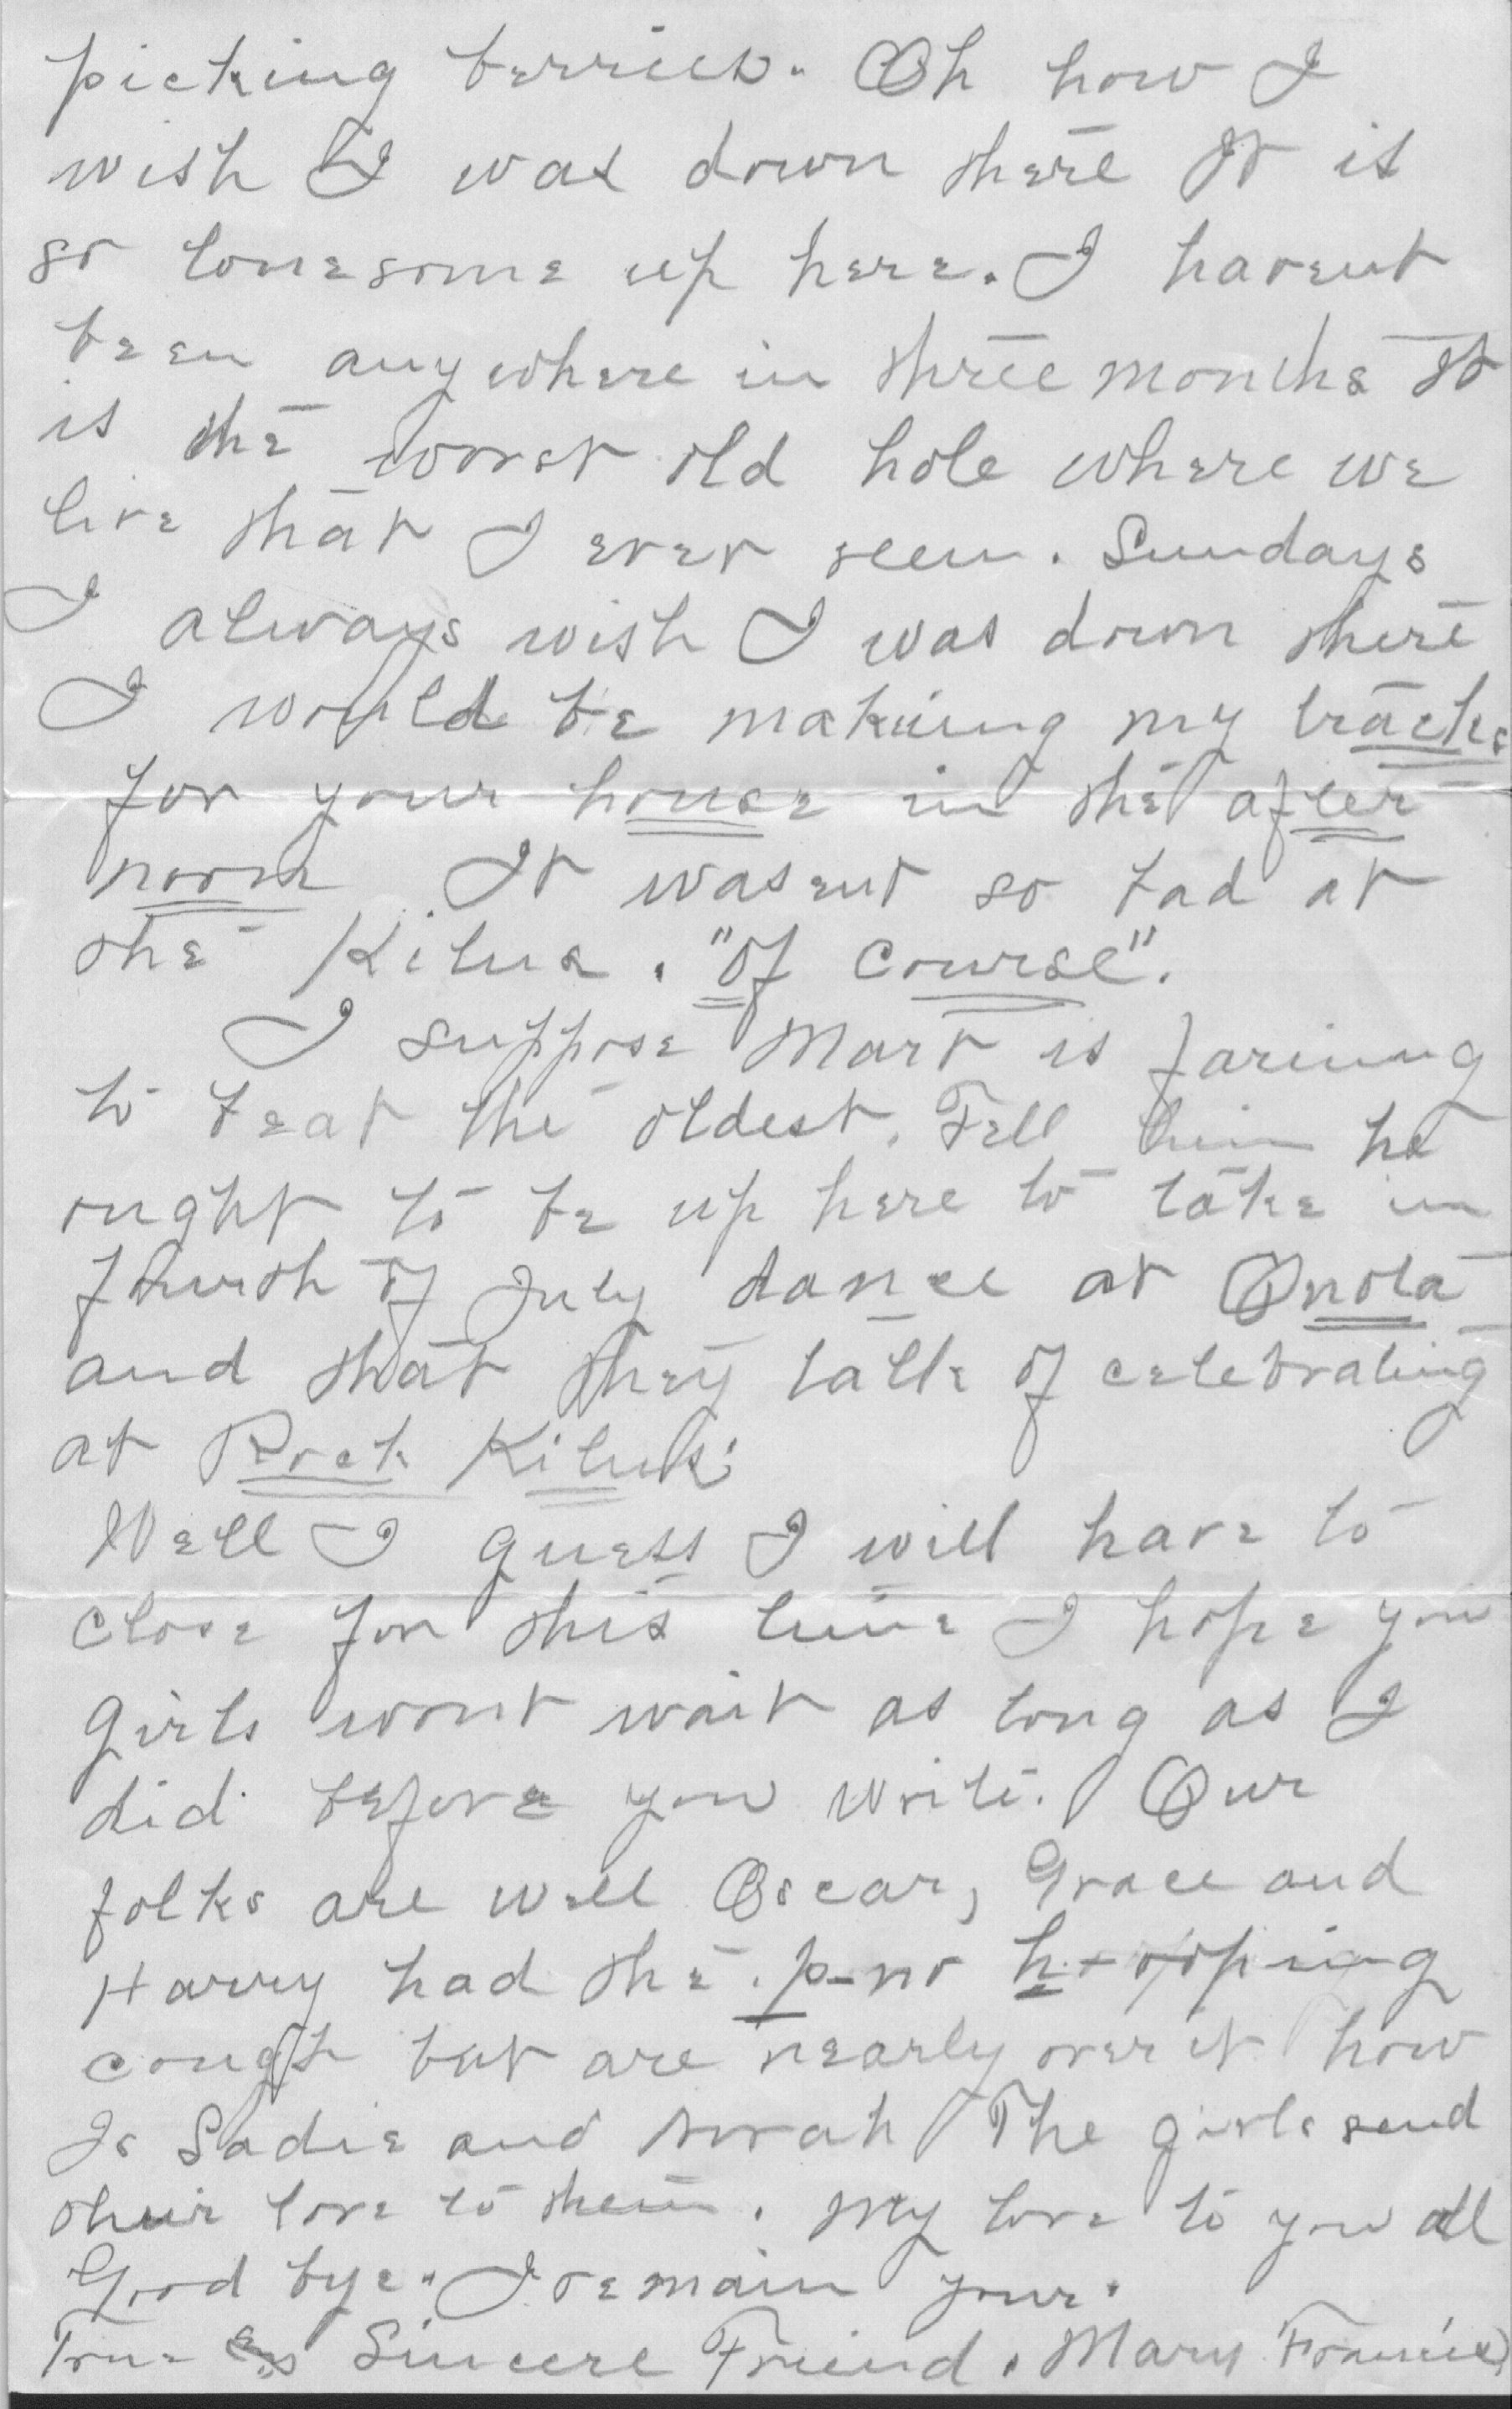 picking berries. Oh how I
wish I was down there It is
so lonesome up here. I havent
been any where in three months It
is the worst old hole where we
live that I ever seen. Sundays
I always wish I was down there
I would be making my tracks
for your house in the after
noon It wasent so bad at
the Kilns. "Of course".
I suppose Mart is farming
to beat the oldest. Tell him he
ought to be up here to take in
fourth of July dance at Onota
and that they talk of celebrating
at Rock Kilns.
Well I guess I will have to
close for this time I hope you
girls wont wait as long as I
did before you write. Our
folks are well Oscar, Grace and
Harry had the
cough but are nearly over it how
Is Sadie and Norah The girls send
their love to them. My love to you all
Good bye. I remain your.
True Sincere Friend. Mary